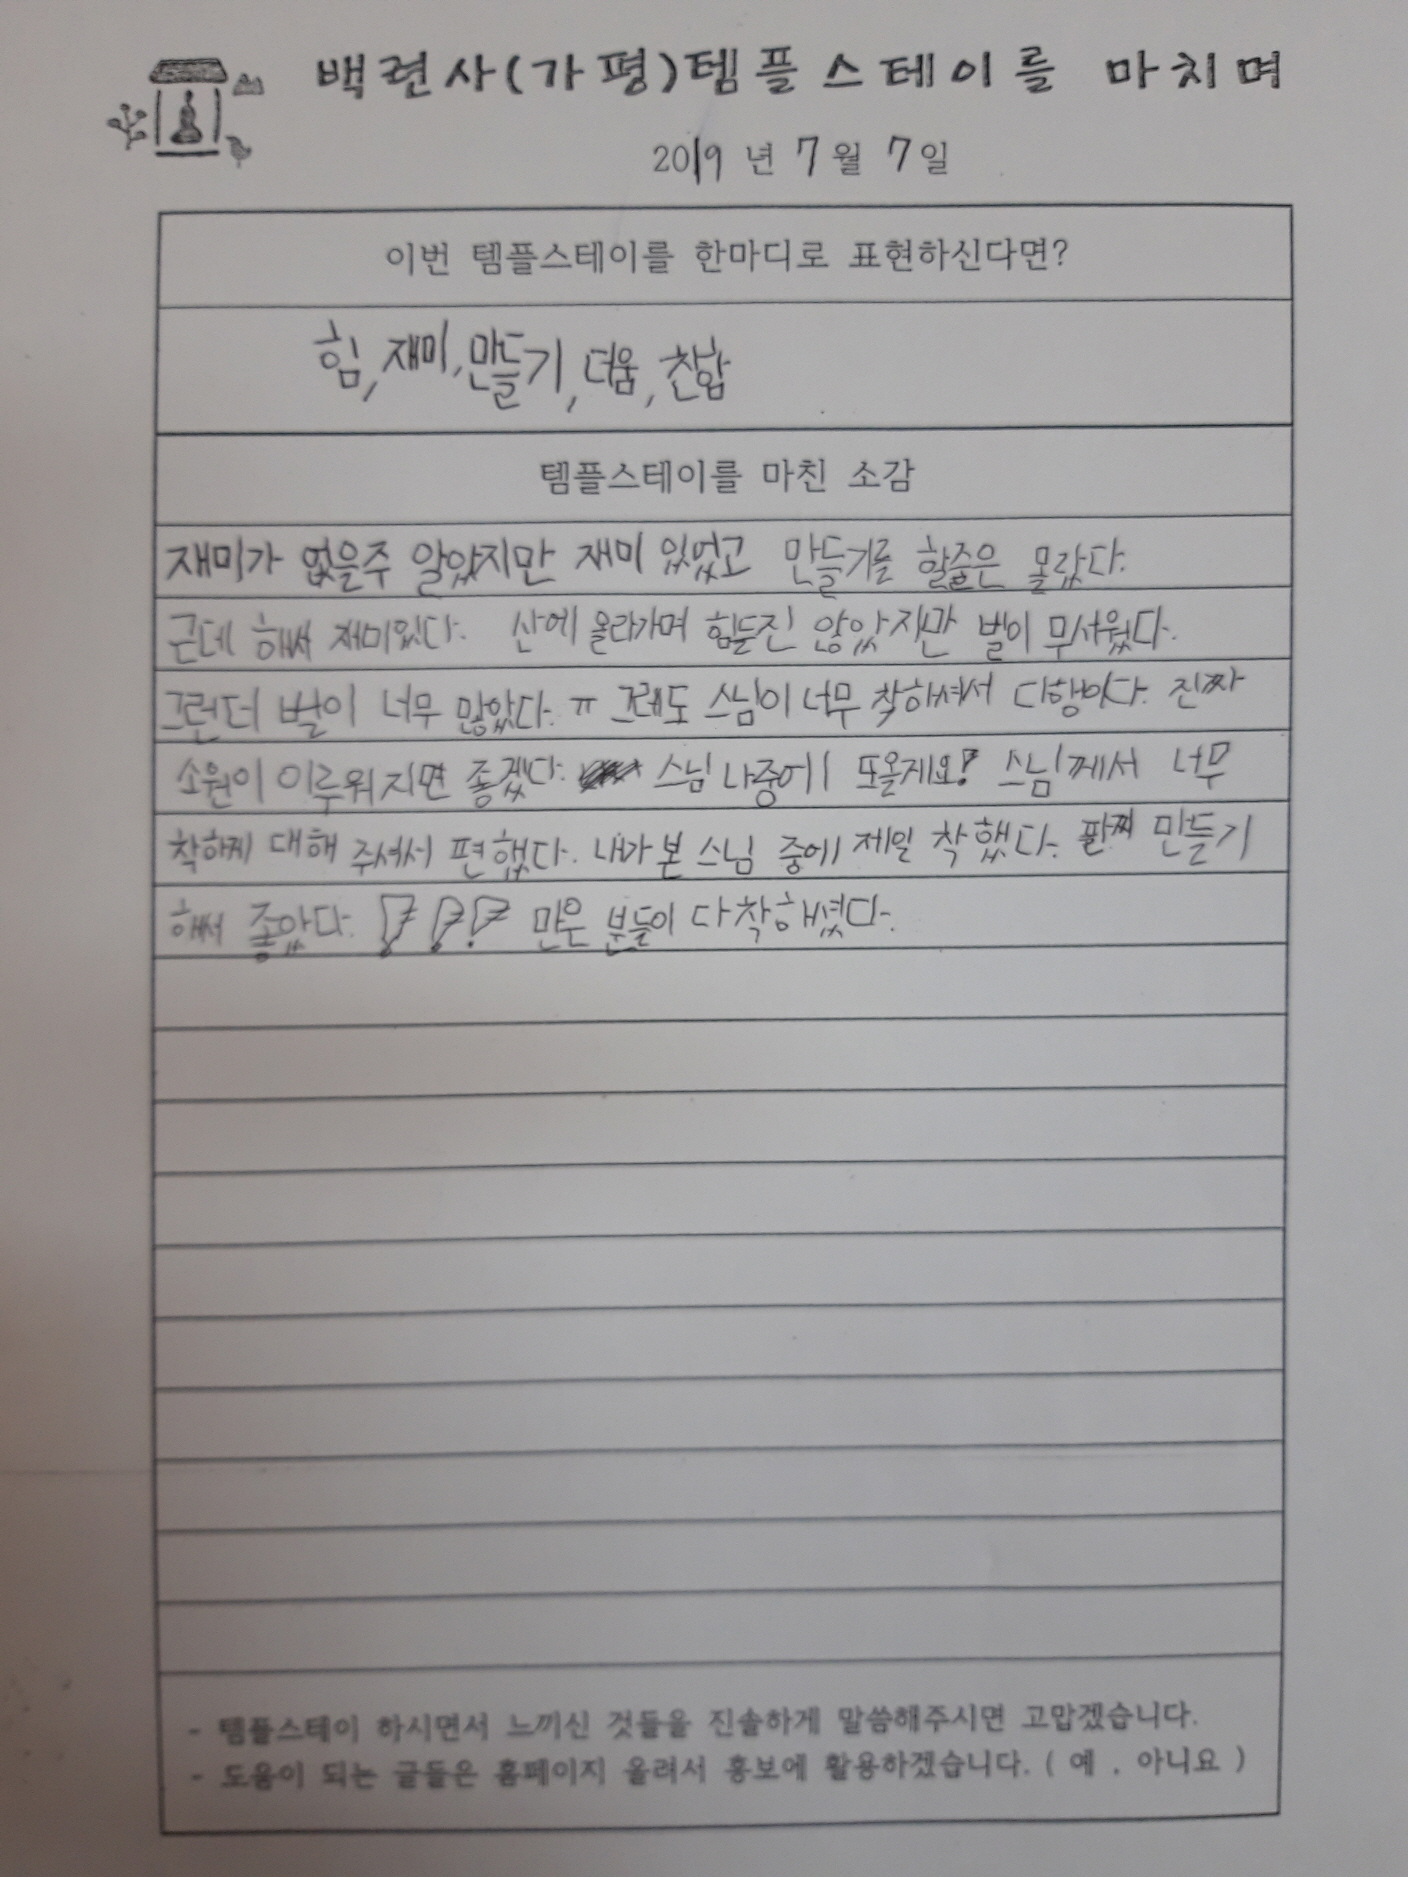 백련사(가평)템플스테이를 마치며
2019 년 7월 7일
이번 템플스테이를 한마디로 표현하신다면?
힘, 재미, 만들기, 더움, 착함
템플스테이를 마친 소감
재미가 없을주 알았지만 재미 있었고 만들기를 할줄은 몰랐다.
근데 해서 재미있다. 산에 올라가며 힘들진 않았지만 벌이 무서웠다.
그런더 벌이 너무 많았다. ㅠ 그래도 스님이 너무 착하셔서 다행이다. 진짜
소원이 이루워지면 좋겠다. 스님 나중에 또올게요! 스님께서 너무
착하게 대해 주셔서 편했다. 내가 본 스님 중에 제일 착했다. 팔찌 만들기
해서 좋았다. !!! 만은 분들이 다 착해셨다.
- 템플스테이 하시면서 느끼신 것들을 진솔하게 말씀해주시면 고맙겠습니다.
- 도움이 되는 글들은 홈페이지 올려서 홍보에 활용하겠습니다. ( 예 , 아니요 )